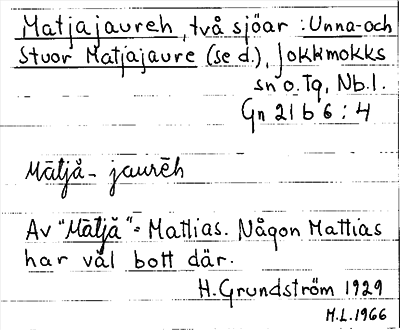 Matjajaureh, två sjöar : Unna- och
Stuor Matjajaure (se d.), Jokkmokks
sn o. Tg, Nb. l.
Gn 21 b 6 : 4
Mātjå- jaurēh
Av "Mātjå" = Mattias. Någon Mattias
har väl bott där.
H. Grundström 1929
M.L. 1966